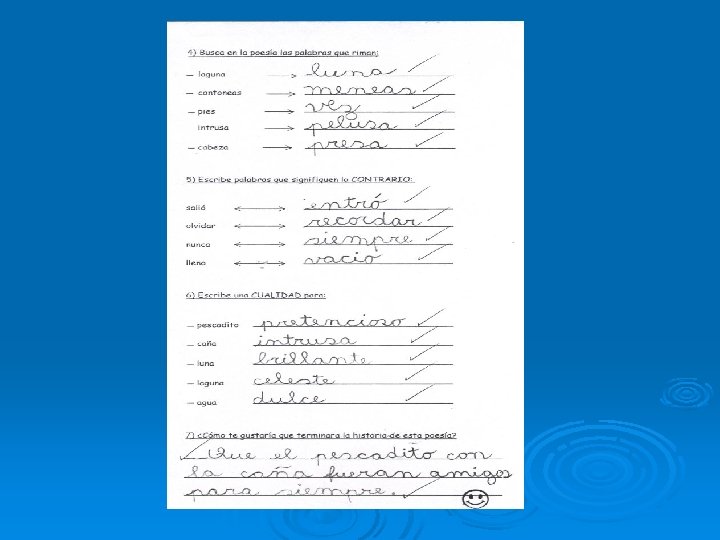 4) Busca en la poesía las palabras que riman:
– laguna → luna
– contoneas → meneas
– pies → vez
intrusa → pelusa
– cabeza → presa
5) Escribe palabras que signifiquen lo CONTRARIO:
salió ↔ entró
olvidar ↔ recordar
nunca ↔ siempre
lleno ↔ vacio
6) Escribe una CUALIDAD para:
– pescadito pretencioso
– caña intrusa
– luna brillante
– laguna celeste
– agua dulce
7) ¿Cómo te gustaría que terminara la historia de esta poesía?
Que el pescadito con
la caña fueran amigos
para siempre.